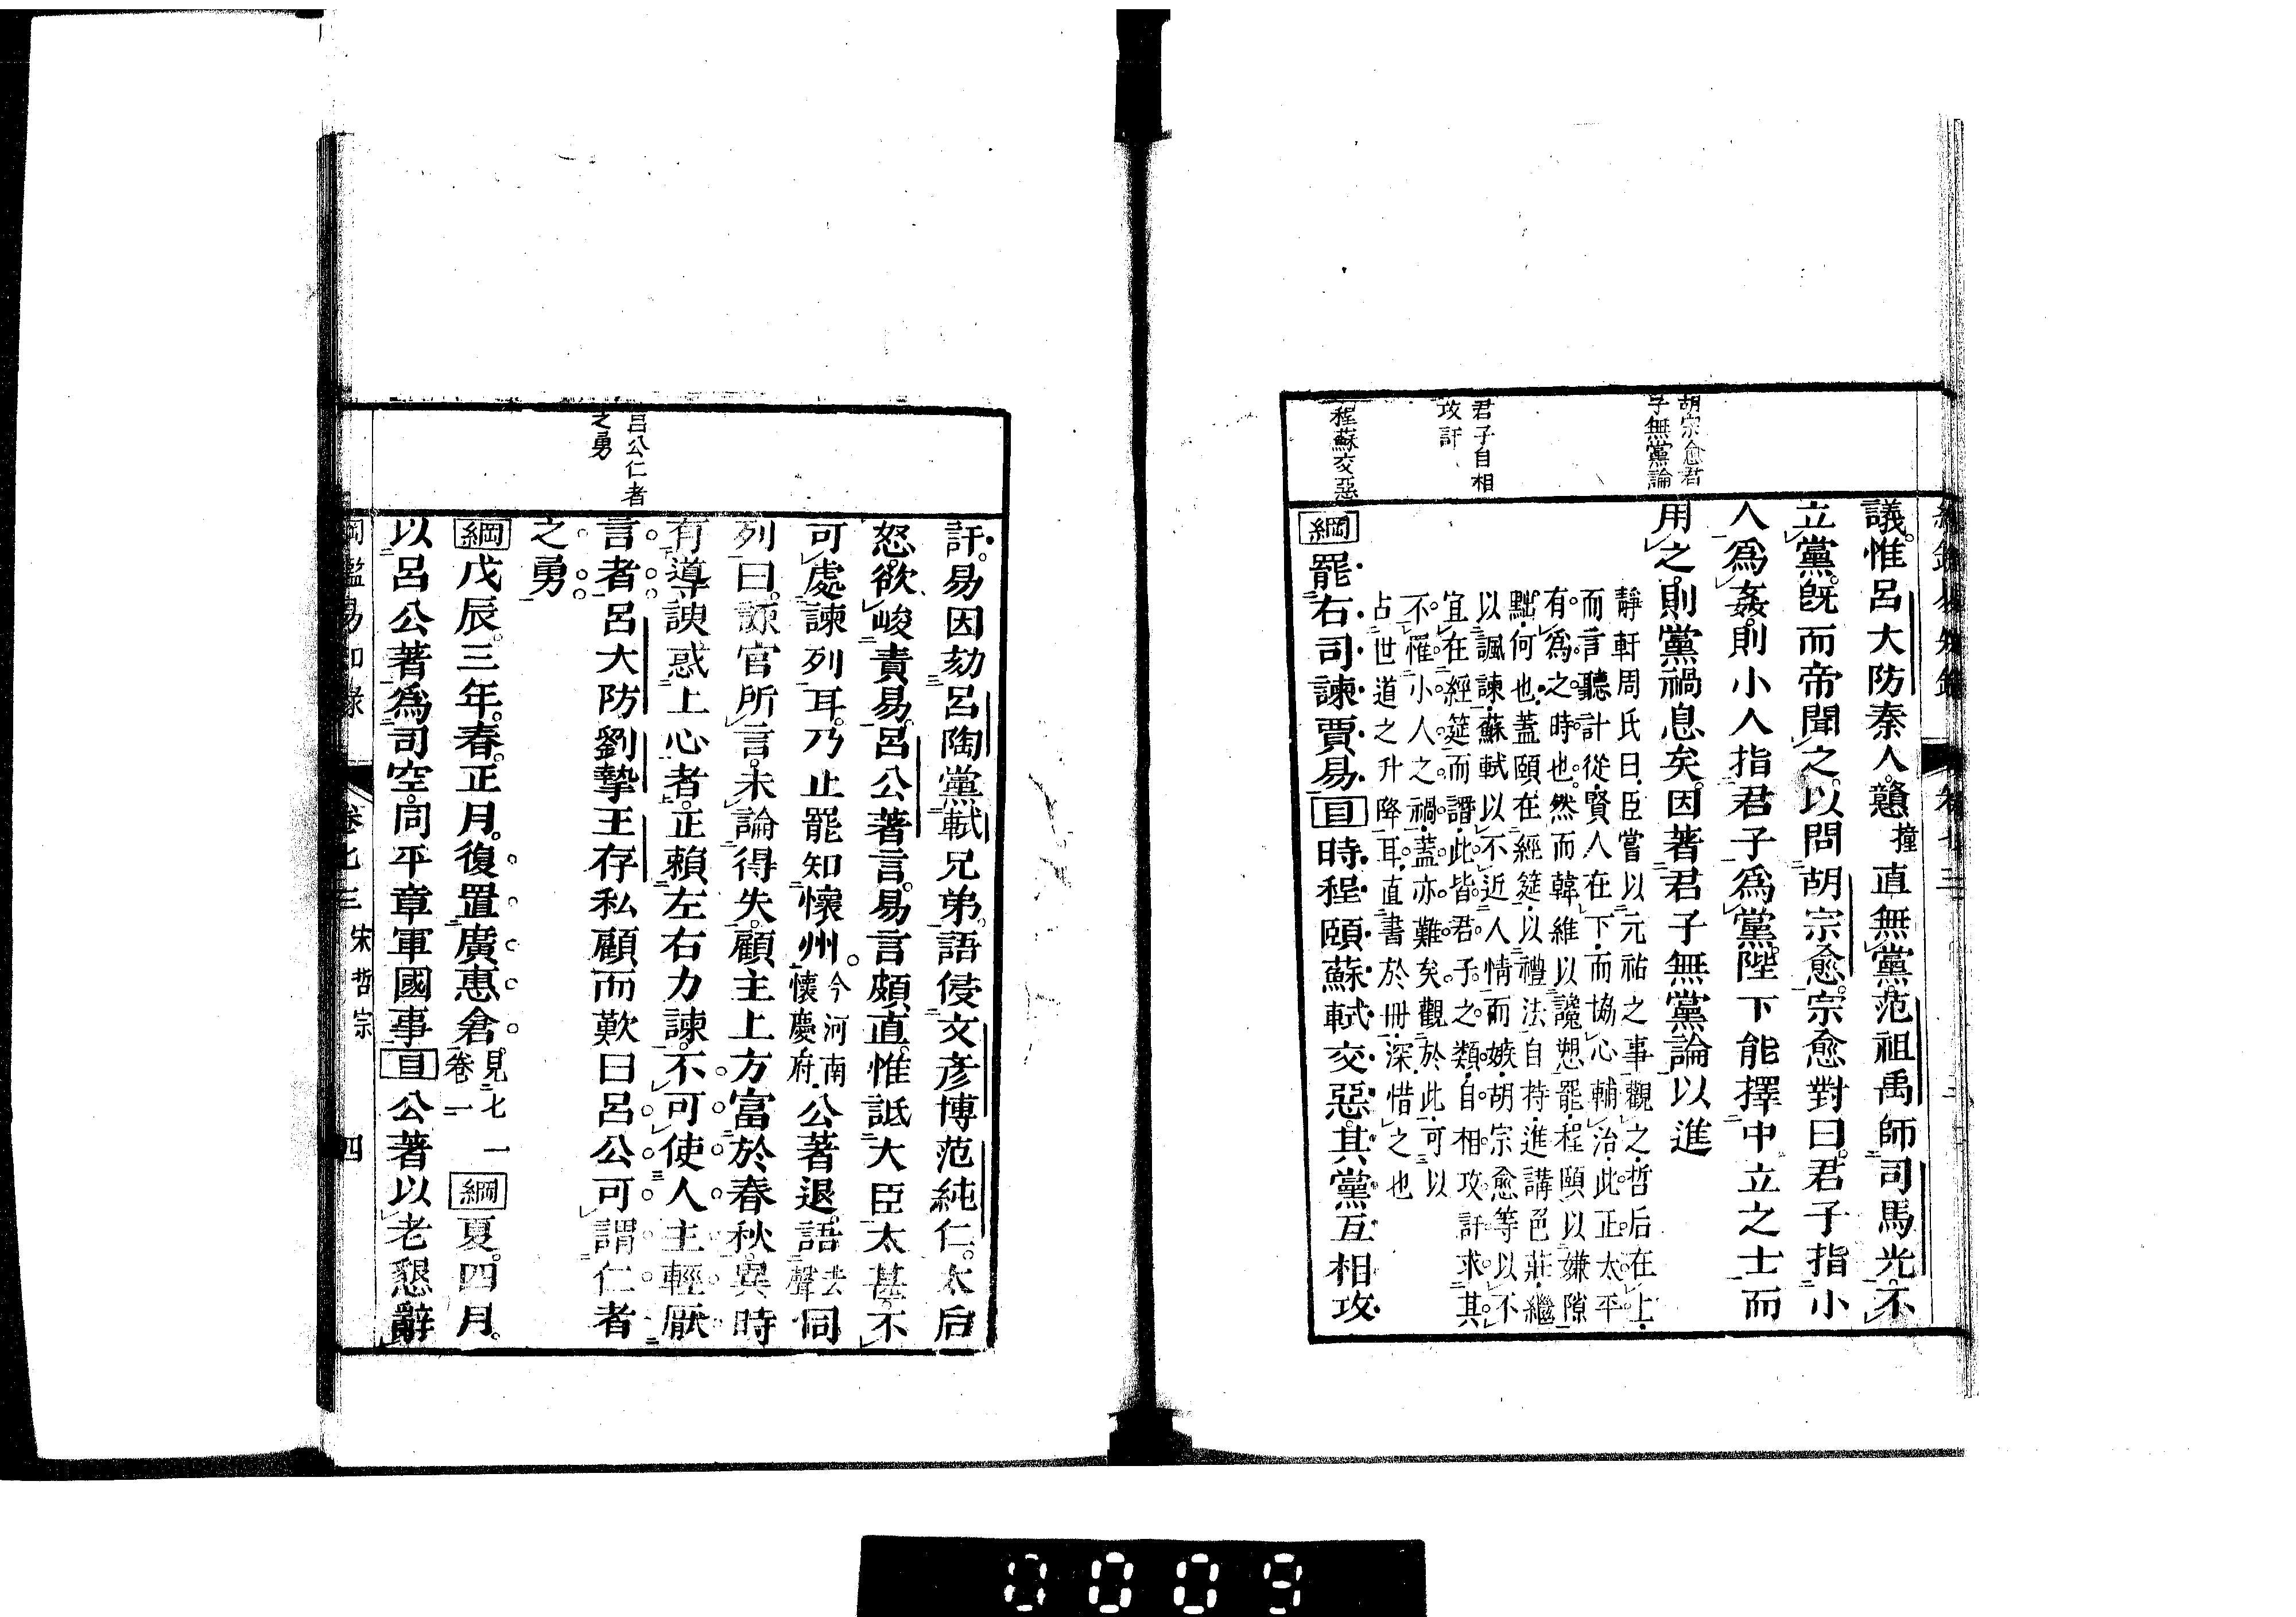 胡宗愈君
子無黨論
君子自相
攻訐
程蘇交惡
議惟呂大防秦人戇撞直無黨范祖禹師司馬光不
立黨既而帝聞之以問胡宗愈宗愈對曰君子指小
人爲姦則小人指君子爲黨陛下能擇中立之士而
用之則黨禍息矣因著君子無黨論以進
靜軒周氏曰臣嘗以元祐之事觀之哲后在上
而言聽計從賢人在下而協心輔治此正太平
有爲之時也然而韓維以讒愬罷程頤以嫌隙
黜何也蓋頤在經筵以禮法自持進講色莊繼
以諷諫蘇軾以不近人情而嫉胡宗愈等以不
宜在經筵而譖此皆君子之類自相攻訐求其
不罹小人之禍蓋亦難矣觀於此可以
占世道之升降耳直書於冊深惜之也
綱罷右司諫賈易目時程頤蘇軾交惡其黨互相攻
呂公仁者
之勇
訐易因劾呂陶黨軾兄弟語侵文彥博范純仁太后
怒欲峻責易呂公著言易言頗直惟詆大臣太甚不
可處諫列耳乃止罷知懷州今河南懷慶府公著退語去聲同
列曰諫官所言未論得失顧主上方富於春秋異時
有導諛惑上心者正賴左右力諫不可使人主輕厭
言者呂大防劉摯王存私顧而歎曰呂公可謂仁者
之勇
綱戊辰三年春正月復置廣惠倉見七一卷一綱夏四月
以呂公著爲司空同平章軍國事目公著以老懇辭
綱鑑易知錄 卷七三 宋哲宗 四
0009